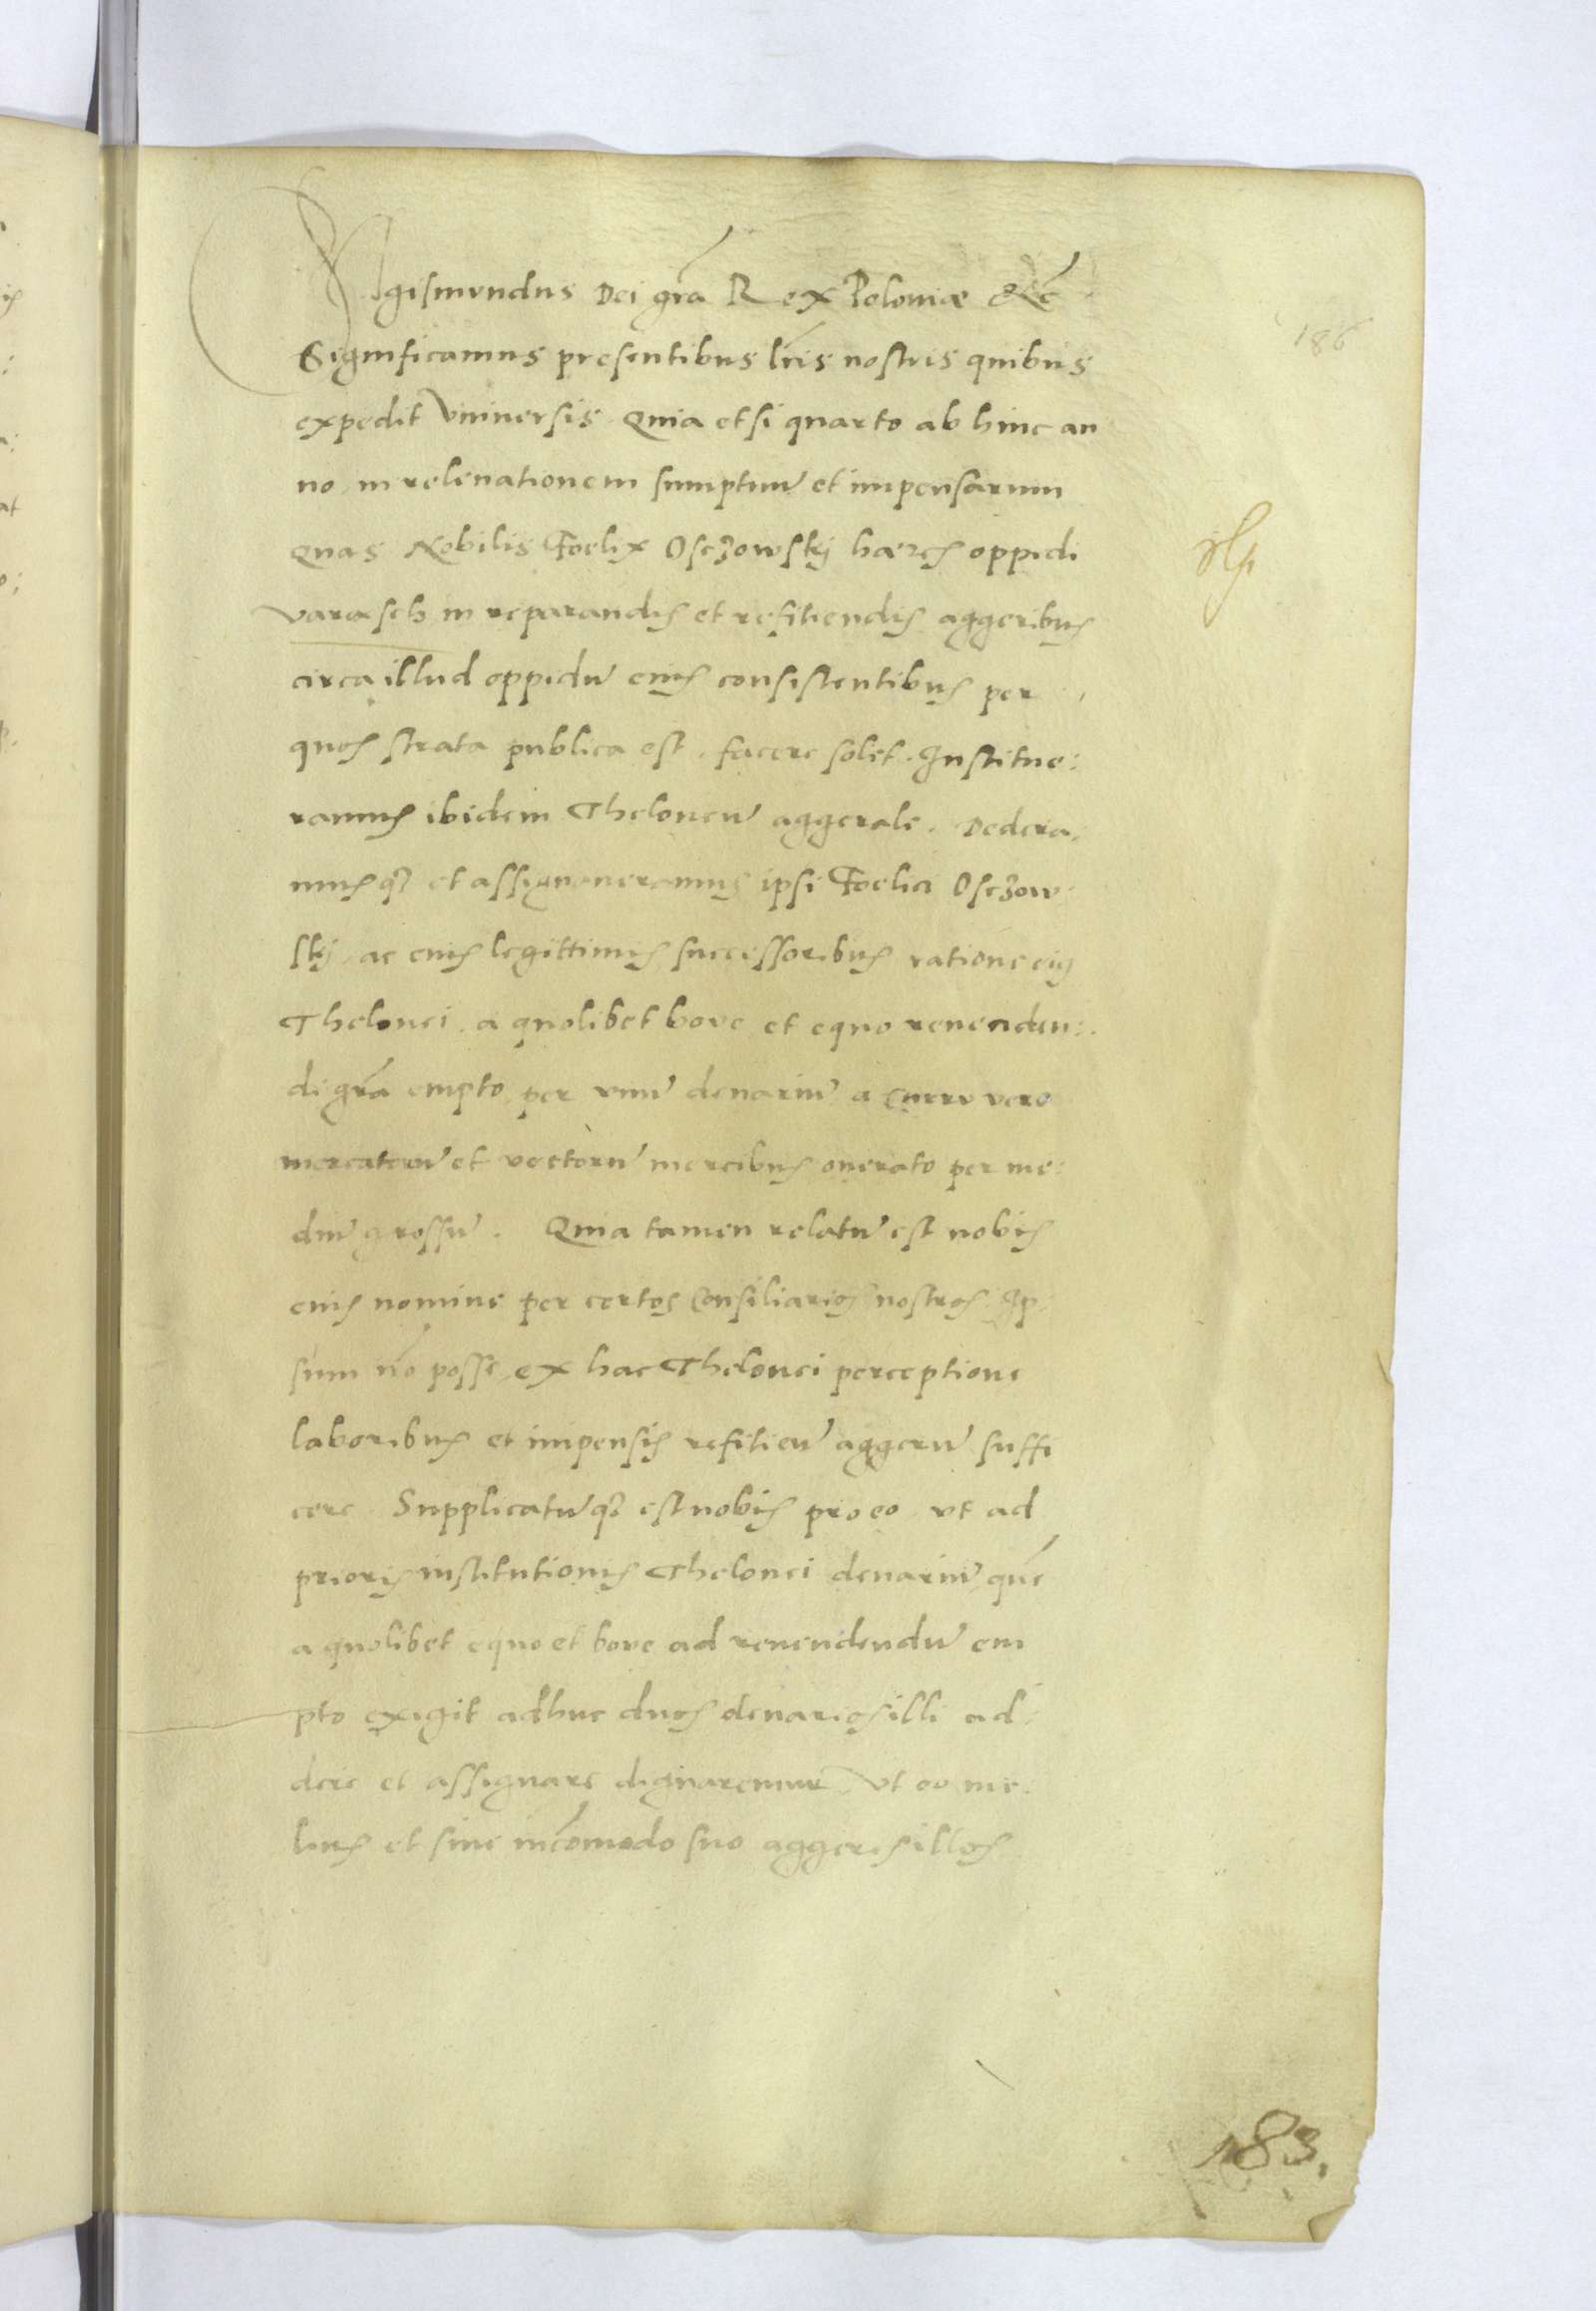 Sigismundus Dei gr̃a Rex Poloniæ &c̃
186
Significamus presentibus lr̃is nostris quibus
expedit Vniuersis. Quia etsi quarto ab hinc an
no, in releuationem sumptuu̅ et impensarum
quas Nobilis Foelix Osczowskij haeres oppidi
Varasch in reparandis et refitiendis aggeribus
circa illud oppidu̅ eius consistentibus per
quos strata publica est, facere solet. Institue:
ramus ibidem Theloneu̅ aggerale. Dedera:
musq3 et assignaueramus ipsi Foelici Osczow:
skij, ac eius legittimis successoribus ratione eius
Thelonei. a quolibet boue et equo reuenden:
di gr̃a empto per vnu̅ denariu̅ a curru vero
mercatoru̅ et vectoru̅ mercibus onerato per me:
diu̅ grossu̅. Quia tamen relatu̅ est nobis
eius nomine per certos Consiliarios nostros. Ip:
sum no̅ posse ex hac Thelonei perceptione
laboribus et impensis refitien̅ aggeru̅ suffi
cere. Supplicatu̅q3 est nobis pro eo, vt ad
prioris institutionis Thelonei denariu̅, que̅
a quolibet equo et boue ad reuendendu̅ em
pto exigit adhuc duos denarios illi ad:
dere et assignare dignaremur. Vt eo me:
lius et sine inco̅modo suo aggeres illos
183.